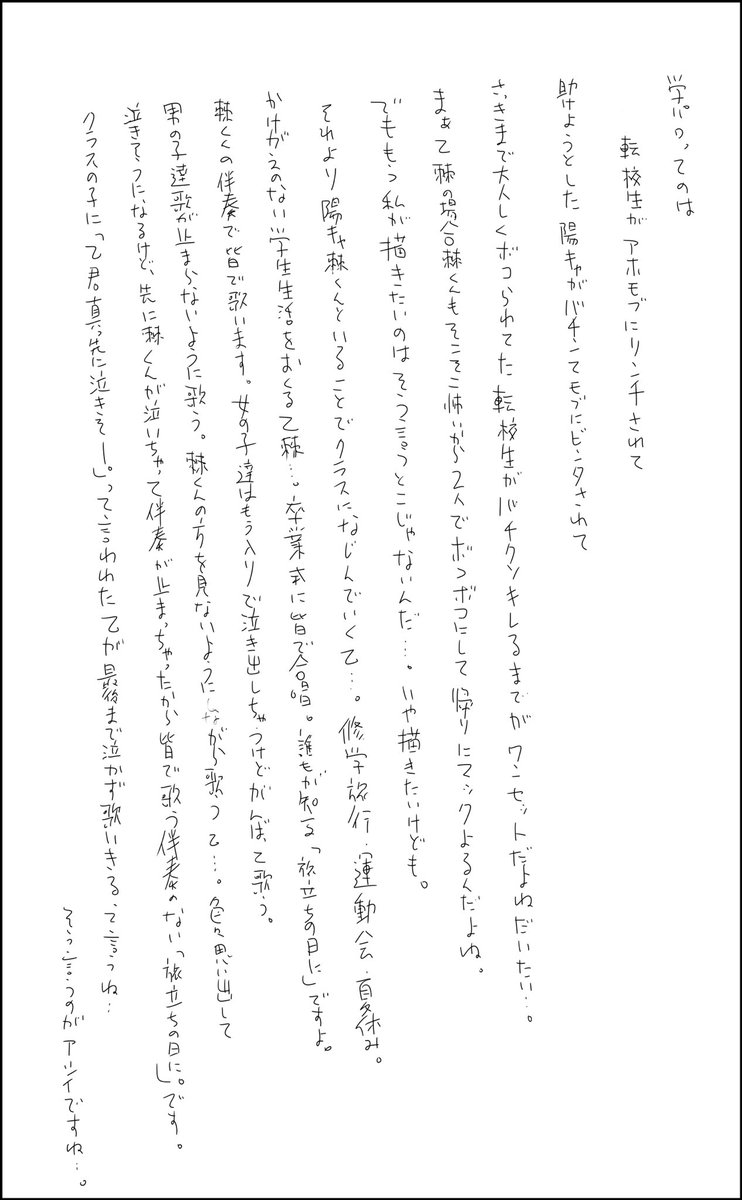 学パロってのは
転校生がアホモブにリンチされて
助けようとした陽キャがバチンてモブにビンタされて
さっきまで大人しくボコられてた転校生がバチクソキレるまでがワンセットだよねだいたい…。
まぁ乙棘の場合棘くんもそこそこ怖いから2人でボコボコにして帰りにマックよるんだよね。
でももう私が描きたいのはそう言うとこじゃないんだ…。いや描きたいけども。
それより陽キャ棘くんといることでクラスになじんでいく乙…。修学旅行・運動会・夏休み。
かけがえのない学生生活をおくる乙棘…。卒業式に皆で合唱。誰もが知る「旅立ちの日に」ですよ。
棘くんの伴奏で皆で歌います。女の子達はもう入りで泣き出しちゃうけどがんばって歌う。
男の子達歌が止まらないように歌う。棘くんの方を見ないようにしながら歌う乙…。色々思い出して
泣きそうになるけど、先に棘くんが泣いちゃって伴奏が止まっちゃったから皆で歌う伴奏のない「旅立ちの日に。」です。
クラスの子に「乙君真っ先に泣きそー。」って言われた乙が最後まで泣かず歌いきるって言うね…
そう言うのがアツイですね…。